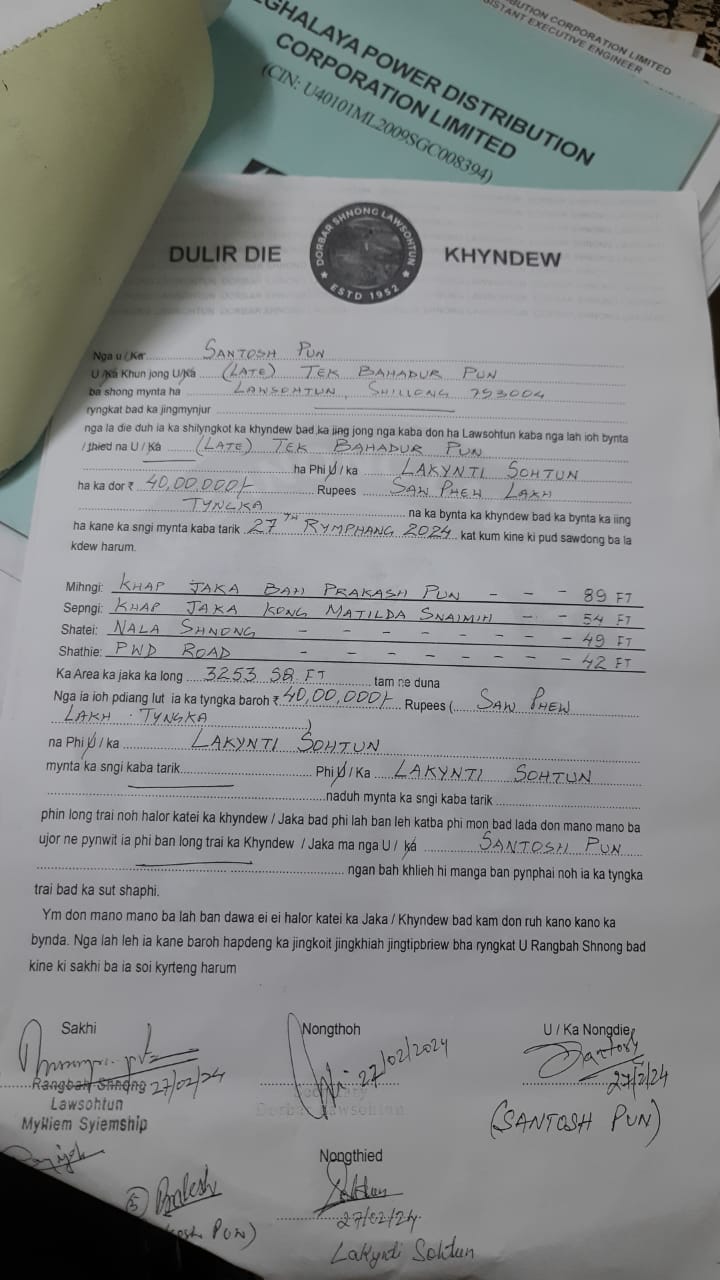 BUTION CORPORATION LIMITED
SISTANT EXECUTIVE ENGINEER
EGHALAYA POWER DISTRIBUTION
CORPORATION LIMITED
(CIN: U40101ML2009SGC008394)
DULIR DIE KHYNDEW
DORBAR SHNONG LAWSOHTUN
ESTD 1952
Nga u / Ka SANTOSH PUN
U /Ka Khun jong U/Ka (LATE) TEK BAHADUR PUN
ba shong mynta ha LAWSOHTUN, SHILLONG 793004
ryngkat bad ka jingmynjur
nga la die duh ia ka shilyngkot ka khyndew bad ka iing jong nga kaba don ha Lawsohtun kaba nga lah ioh bynta
/ thied na U / Ka (LATE) TEK BAHADUR PUN
ha Phi U / ka LAKYNTI SOHTUN
ha ka dor ₹ 40,00,000/- Rupees SAW PHEW LAKH
TYNGKA na ka bynta ka khyndew bad ka bynta ka iing
ha kane ka sngi mynta kaba tarik 27TH RYMPHANG 2024 kat kum kine ki pud sawdong ba la
kdew harum.
Mihngi: KHAP JAKA BAH PRAKASH PUN - - - 89 FT
Sepngi: KHAP JAKA KONG MATILDA SNAIMIH - - 54 FT
Shatei: NALA SHNONG - - - - - - - - 49 FT
Shathie: PWD ROAD - - - - - - - - 42 FT
Ka Area ka jaka ka long 3253 SQ FT tam ne duna
Nga ia ioh pdiang lut ia ka tyngka baroh ₹ 40,00,000/- Rupees ( SAW PHEW
LAKH TYNGKA )
na Phi U / ka LAKYNTI SOHTUN
mynta ka sngi kaba tarik Phi U / Ka LAKYNTI SOHTUN
naduh mynta ka sngi kaba tarik
phin long trai noh halor katei ka khyndew / Jaka bad phi lah ban leh katba phi mon bad lada don mano mano ba
ujor ne pynwit ia phi ban long trai ka Khyndew / Jaka ma nga U / ka SANTOSH PUN
ngan bah khlieh hi manga ban pynphai noh ia ka tyngka
trai bad ka sut shaphi.
Ym don mano mano ba lah ban dawa ei ei halor katei ka Jaka / Khyndew bad kam don ruh kano kano ka
bynda. Nga lah leh ia kane baroh hapdeng ka jingkoit jingkhiah jingtipbriew bha ryngkat U Rangbah Shnong bad
kine ki sakhi ba ia soi kyrteng harum
Sakhi Nongthoh U / Ka Nongdie
27/02/24 27/02/2024 Santosh
27/2/24
Rangbah Shnong Secretary
Lawsohtun Dorbar Lawsohtun
Mylliem Syiemship (SANTOSH PUN)
Nongthied
5 Prakash
PUN) 27/02/24
Lakynti Sohtun